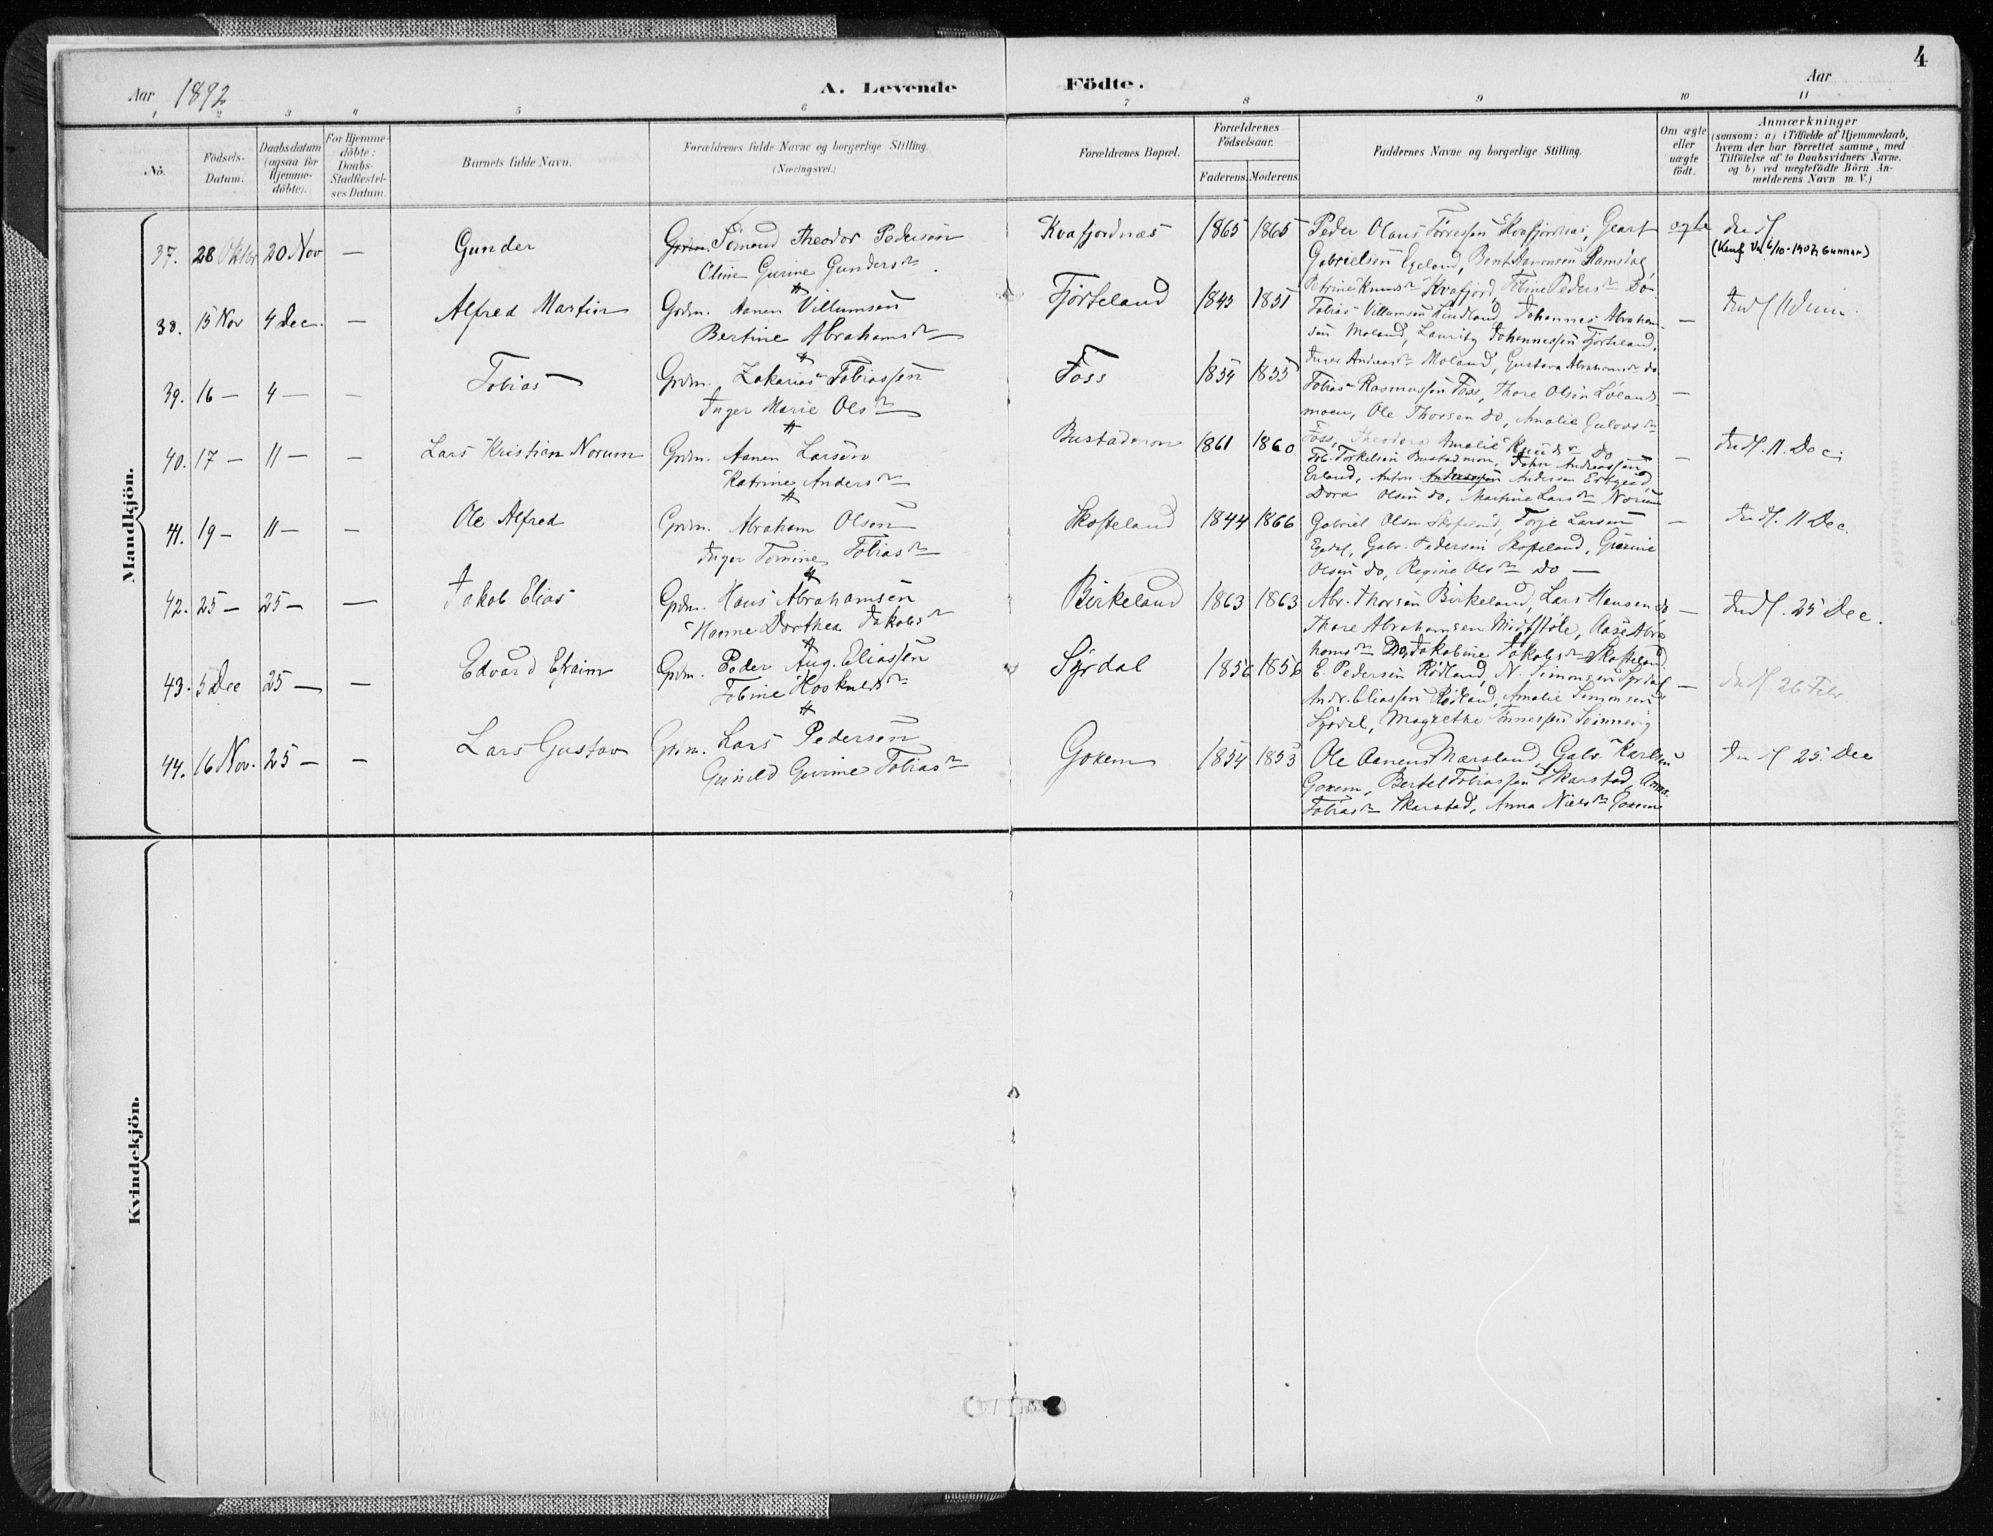 4
Aar 1892
A. Levende Födte.
Aar
1 2 3 4 5 6 7 8 9 10 11
No.
Födsels-Datum.
Daabsdatum (ogsaa for Hjemmedöbte).
For Hjemmedöbte: Daabs-Stadfæstelses Datum.
Barnets fulde Navn.
Forældrenes fulde Navne og borgerlige Stilling.
(Næringsvei.)
Forældrenes Bopæl.
Forældrenes Födselsaar.
Faderens. Moderens.
Faddernes Navne og borgerlige Stilling.
Om ægte eller uægte födt.
Anmærkninger
(saasom: a) i Tilfælde af Hjemmedaab, hvem der har forrettet samme, med Tilföielse af to Daabsvidners Navne, og b) ved uægtefödte Börn Anmelderens Navn m. V.)
Mandkjön.
37. 28 Oktbr 20 Nov — Gunder
Grdm. Tomand Theodor Pedersen
Oline Gurine Gundersdr
Kvafjordnæs 1865 1865
Peder Olaus Tørresen Kvafjordnæs, Geart
Gabrielsen Egeland, Bent Aanensen Ramsdal,
Petrine Knudsdr Kvafjord, Tobine Pedersdr Do
ægte
Indf
38. 15 Nov 4 Dec. — Alfred Martin
Grdm. Aanen Villumsen
Bertine Abrahamsdr
Fjörteland 1843 1851
Tobias Villumsen Lindland, Johannes Abrahamsen Moland, Lauritz Johannessen Fjörteland,
Inger Andreasdr Moland, Gustava Abrahamsdr do.
—
39. 16 — 4 — — Tobias
Grdm. Zakarias Tobiassen
Inger Marie Olsdr
Foss 1854 1855
Tobias Rasmussen Foss, Thore Olsen Lølandsmoen, Ole Thorsen do, Amalie
Foss, Theodora Amalie Do
—
40. 17 — 11 — — Lars Kristian Norum
Grdm. Aanen Larsen
Katrine Andersdr
Bustadmon 1861 1860
Torkelsen Bustadmon, John Andreassen
Erland, Anton Andreassen Andersen
Dora Olsen do, Martine Larsdr Norum
—
Indf. 11. Dec.
41. 19 — 11 — — Ole Alfred
Grdm. Abraham Olsen
Inger Tomine Tobiasdr
Skofteland 1844 1866
Gabriel Olsen Skofteland, Torje Larsen
Egdal, Gabr. Pedersen Skofteland, Gurine
Olsen do, Regine Olsdr Do —
—
Indf. 11 Dec.
42. 25 — 25 — — Jakob Elias
Grdm. Hans Abrahamsen
Hanne Dorthea Jakobsdr
Birkeland 1863 1863
Abr. Thorsen Birkeland, Lars Hansen do
Thore Abrahamsen Midtstöle, Aase Abrahamsdr Do, Jakobine Jakobsdr Skofteland
—
Indf. 25 Dec.
43. 5 Dec 25 — — Edvard Efraim
Grdm. Peder Aug. Eliassen
Tobine Hoskuldsdr
Syrdal 1856 1856
E. Pedersen Rødland, N. Simonsen Syrdal
Andr. Eliassen Rødland, Amalie Simonsen
Syrdal, Magrethe Tønnessen Svinnevig
—
Indf 26 Febr.
44. 16 Nov. 25 — — Lars Gustav
Grdm. Lars Pedersen
Gunild Gurine Tobiasdr
Goxem 1854 1853
Ole Aanensen Nærsland, Gabr. Karlsen
Goxem, Bertel Tobiassen Skarstad, Anna
Tobiasdr Skarstad, Anna Nielsdr Goxem
Indf 25. Dec
Kvindekjön.